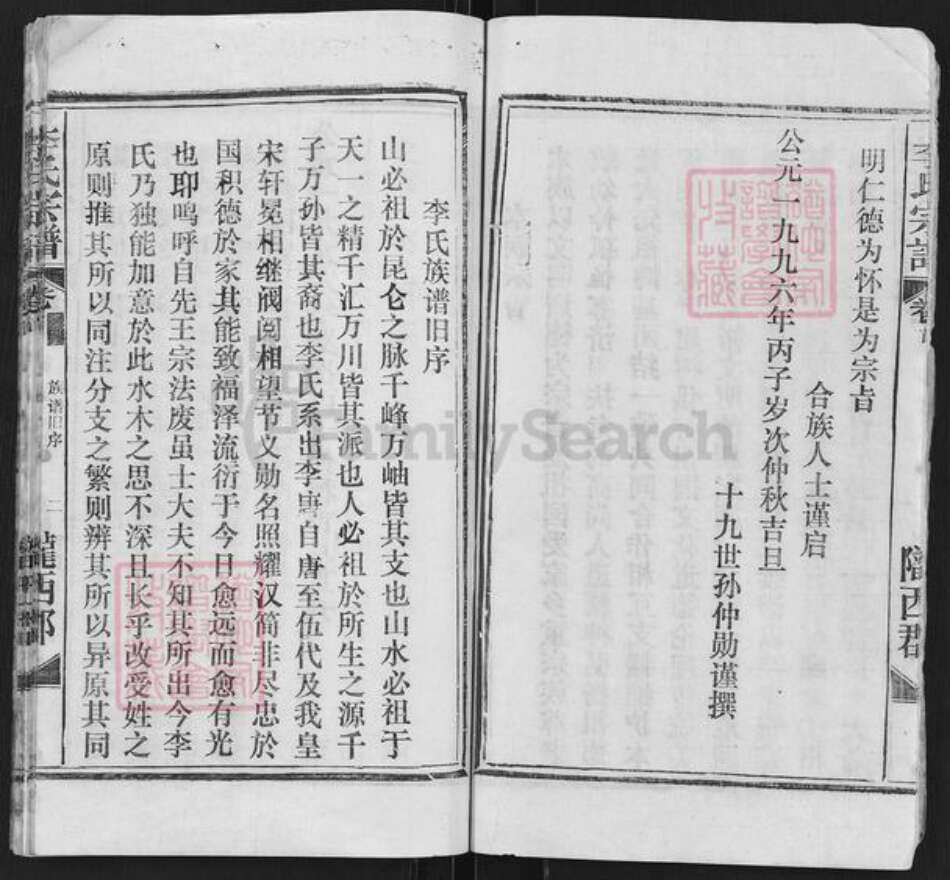 李氏宗譜
卷
隴西郡
明仁德为怀是为宗旨
合族人士谨启
公元一九九六年丙子岁次仲秋吉旦
十九世孙仲勋谨撰
李氏族谱旧序
山必祖於昆仑之脉千峰万岫皆其支也山水必祖于
天一之精千汇万川皆其派也人必祖於所生之源千
子万孙皆其裔也李氏系出李唐自唐至伍代及我皇
宋轩冕相继阀阅相望节义勋名照耀汉简非尽忠於
国积德於家其能致福泽流衍于今日愈远而愈有光
也耶鸣呼自先王宗法废虽士大夫不知其所出今李
氏乃独能加意於此水木之思不深且长乎改受姓之
原则推其所以同注分支之繁则辨其所以异原其同
李氏宗譜
卷
族谱旧序
二
隴西郡
FamilySearch